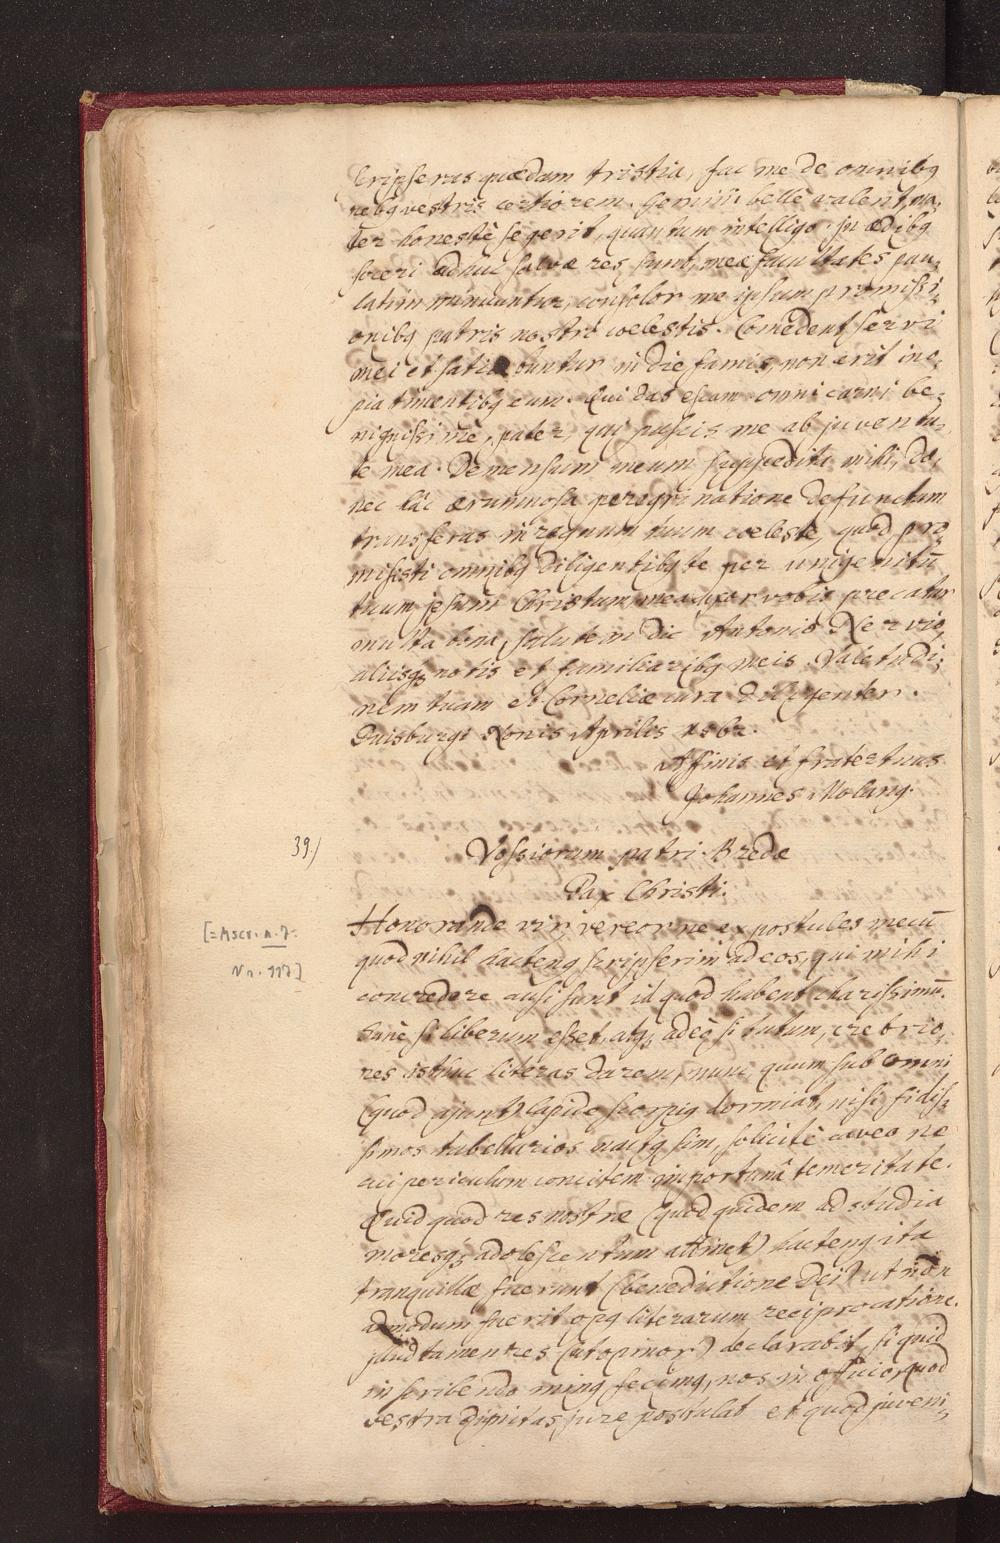 scripseras quædam tristia, fac me de omnibq
rebq vestris certiorem. Gemini bellè valent, ma,
ter honestè se gerit, quantum intelligo. In ædibq
soceri adhuc salvæ res sunt, meæ facultates pau,
latim minuuntur, consolor me ipsum promissi,
onibq patris nostri cœlestis. Comedent servi
mei et saturabuntur in die famis, non erit ino,
pia timentibq eum. Qui das escam omni carni be,
nignissime, pater, qui pascis me ab juventu,
te mea. Demensum meum suppedita mihi, do,
nec hâc ærumnosa peregrinatione defunctum
transferas in regnum tuum cœleste, quod pro,
misisti omnibq diligentibq te per unigenitū
tuum Jesum Christum, mea uxor vobis precatur
multa bona, salutem dic Antonio Nervio,
aliisqȝ notis et familiaribq meis. Valetudi,
nem tuam et Corneliæ cura diligenter.
Duisburgi Nonis Aprilis
Affinis et frater tuus
Johannes Molang.
39.)
Vossiorum patri Bredæ
Pax Christi.
[= Ascr. n. 7.
Nr. 117]
Honorande vir, vereor ne expostules mecū
quod nihil hactenq scripserim ad eos, qui mihi
concredere ausi sunt id quod habent charissimū.
Sanè si liberum esset, atqȝ adeò si tutum, crebrio,
res istuc literas darem, nunc quum sub omni
(quod ajunt) lapide scorpiq dormiat, nisi fidis,
simos tabellarios nactq sim, solicitè caveo ne
cui periculum concitem importunâ temeritate.
Quid quod res nostræ (quod quidem ad studia
moresqȝ adolescentum attinet) hactenq ita
tranquillæ fuerunt (benedictione Dei) ut non
admodum fuerit opq literarum reciprocatione.
Illud tamen res (ut opinor) declarabit, si quid
in scribendo minq fecimq, nos in officio, quod
vestra dignitas jure postulat et quod juveni,